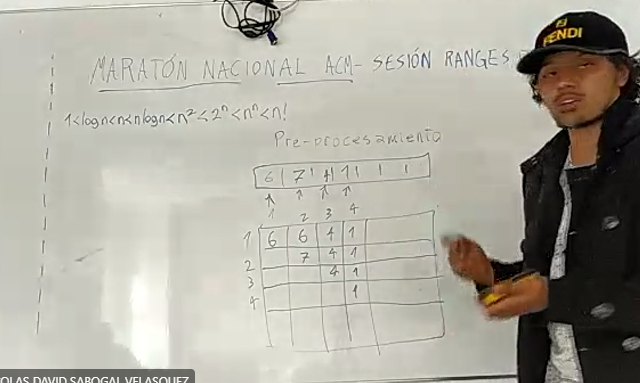 MARATÓN NACIONAL ACM- SESIÓN RANGES
1<logn<n<nlogn<n²<2ⁿ<nⁿ<n!
Pre-procesamiento
6 7 4 1
1 2 3 4
1 6 6 4 1
2 7 4 1
3 4 1
4 1
FENDI
OLAS DAVID SABOGAL VELASQUEZ